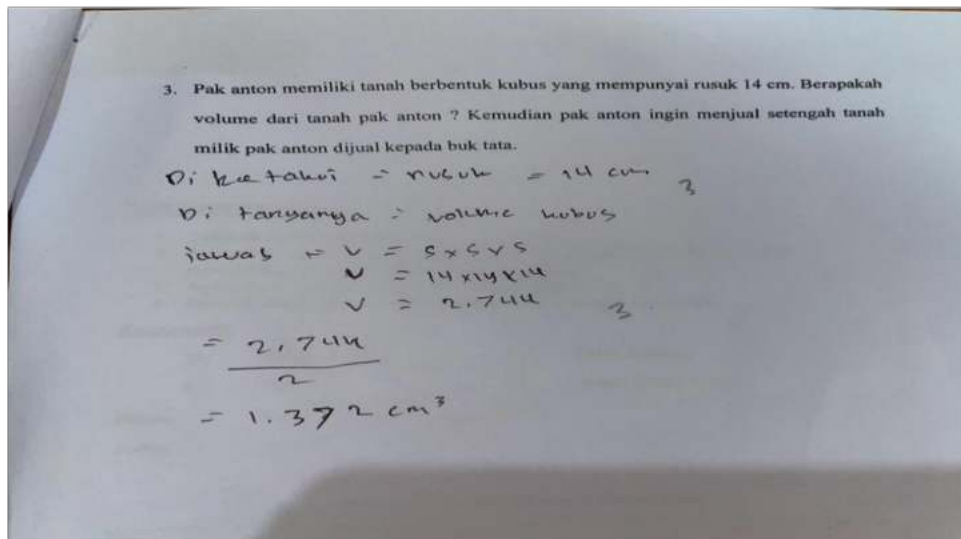 3. Pak anton memiliki tanah berbentuk kubus yang mempunyai rusuk 14 cm. Berapakah
volume dari tanah pak anton ? Kemudian pak anton ingin menjual setengah tanah
milik pak anton dijual kepada buk tata.
Di ketahui = rusuk = 14 cm 3
Di tanyanya = volume kubus
jawab = V = s x s x s
V = 14 x 14 x 14
V = 2.744 3
= 2.744
2
= 1.372 cm³